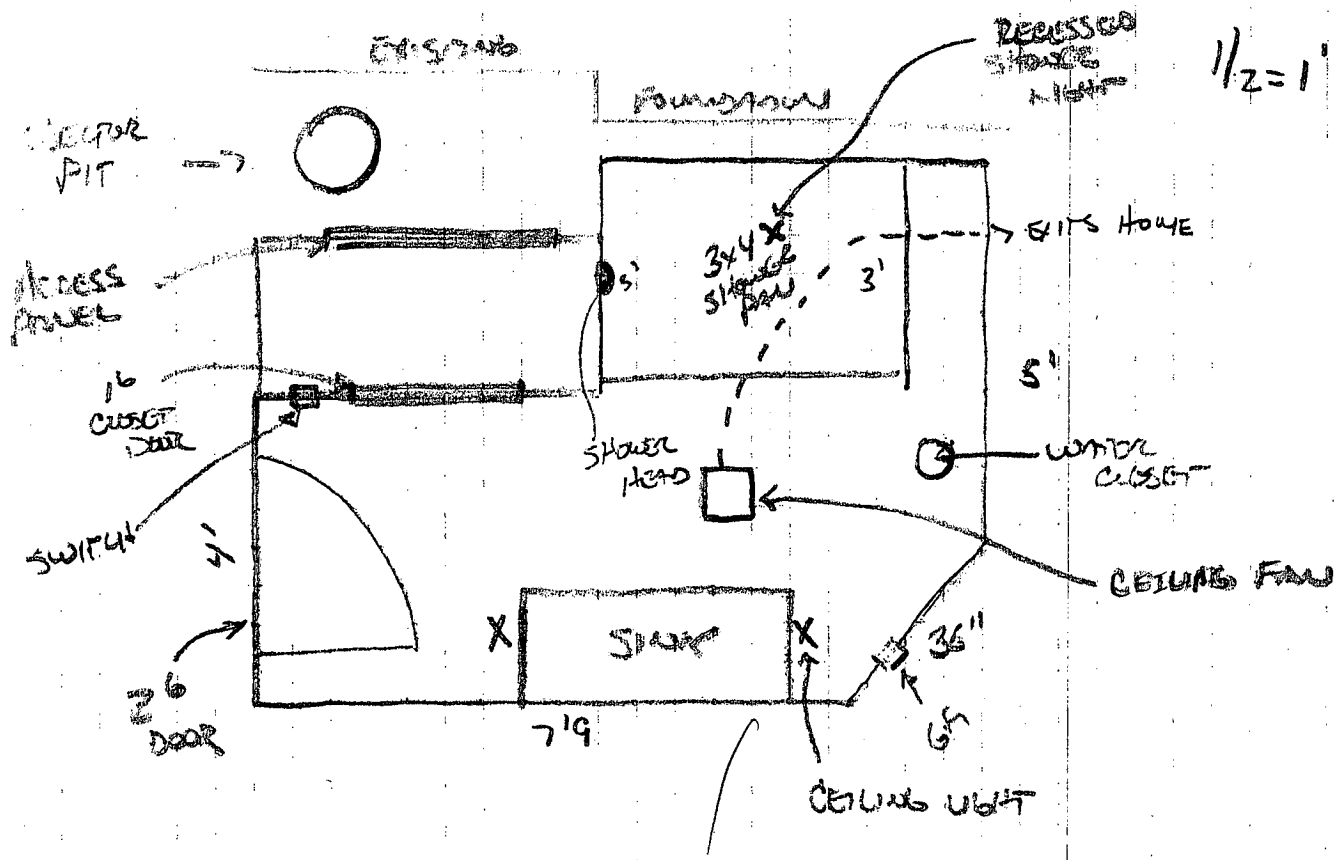 EXISTING
FOUNDATION
RECESSED
SHOWER
LIGHT
1/2 = 1'
EJECTOR
PIT
EXITS HOME
3x4
SHOWER
PAN
5'
3'
ACCESS
PANEL
5'
1 6
CLOSET
DOOR
SHOWER
HEAD
WATER
CLOSET
SWITCH
4'
CEILING FAN
X
SINK
X
36"
2 6
DOOR
7'9
CEILING LIGHT